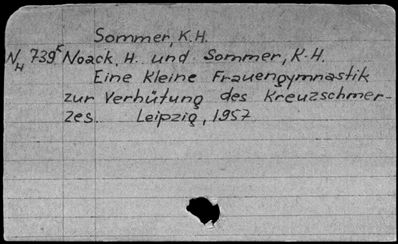 Sommer, K.H.
N H 739K Noack, H. und Sommer, K.H.
Eine kleine Frauengymnastik
zur Verhütung des Kreuzschmer-
zes. Leipzig, 1957